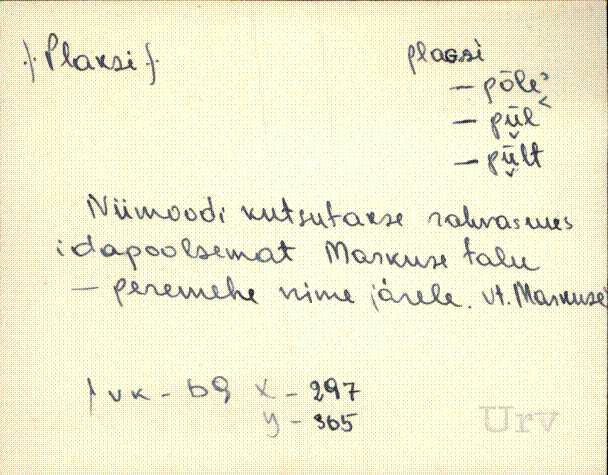 ·|· Plaksi ·|·
plaGsi
– põle'
– pül
– pült
Niimoodi kutsutakse rahvasuus
idapoolsemat Markuse talu
– peremehe nime järele. vt. Markuse
vk – b9 x – 297
y – 365
Urv